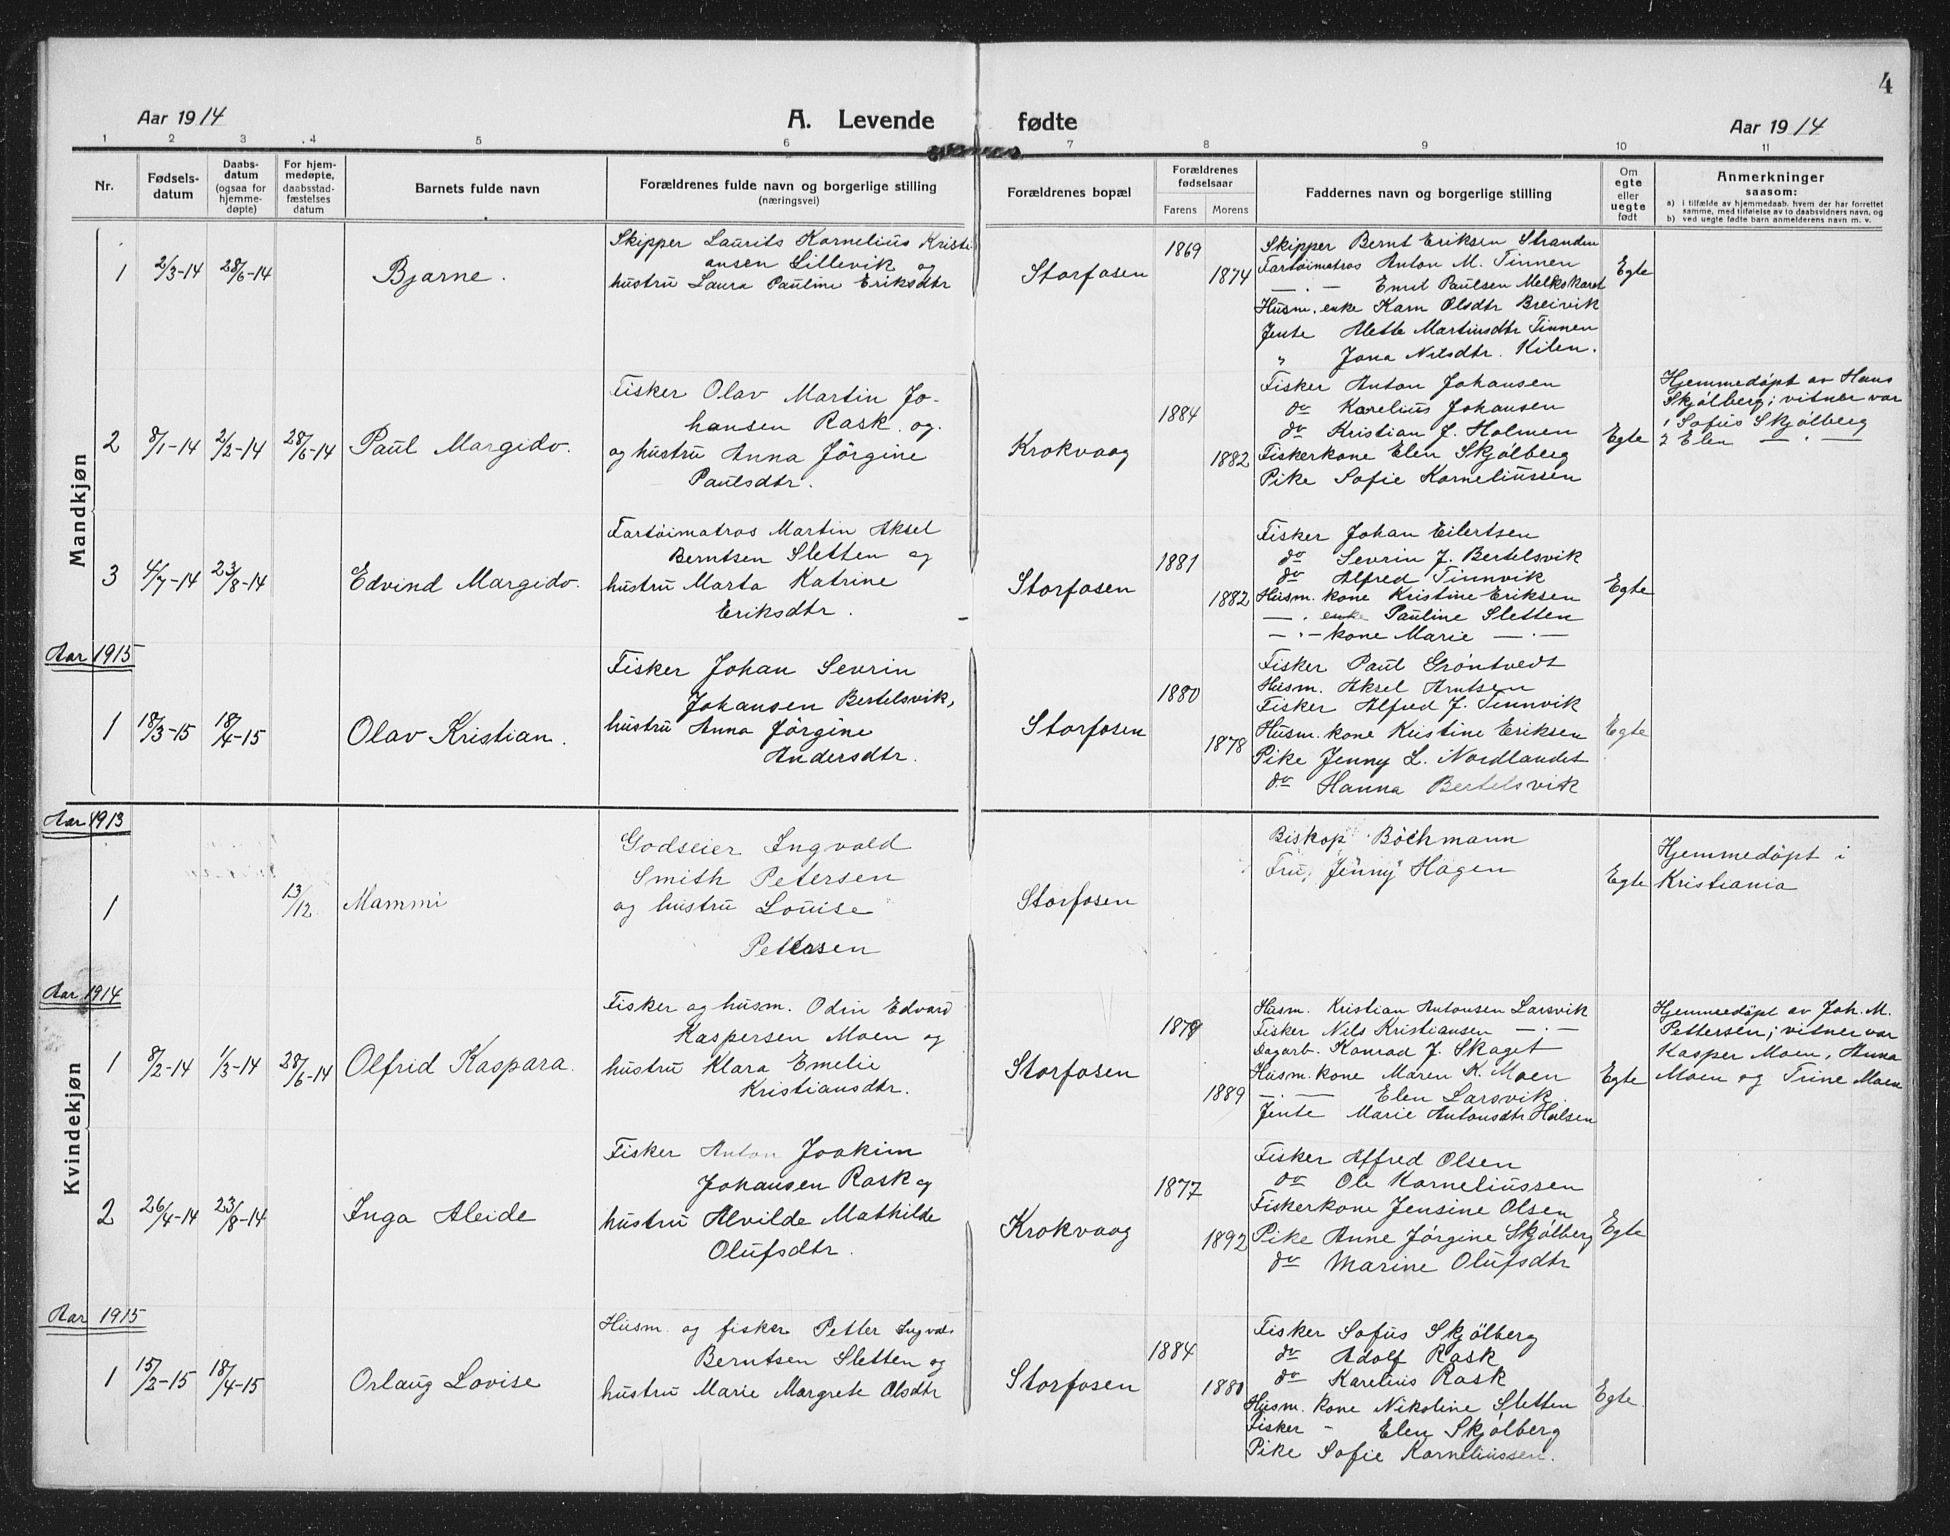 4
Aar 1914
A. Levende fødte
Aar 1914
1 2 3 4 5 6 7 8 9 10 11
Nr.
Fødsels-
datum
Daabs-
datum
(ogsaa for
hjemme-
døpte)
For hjem-
medøpte,
daabsstad-
fæstelses
datum
Barnets fulde navn
Forældrenes fulde navn og borgerlige stilling
(næringsvei)
Forældrenes bopæl
Forældrenes
fødselsaar
Farens Morens
Faddernes navn og borgerlige stilling
Om
egte
eller
uegte
født
Anmerkninger
saasom:
a) i tilfælde av hjemmedaab. hvem der har forrettet
samme, med tilføielse av to daabsvidners navn, og
b) ved uegte fødte barn anmelderens navn m. v.
Mandkjøn
1
2/3-14
28/6-14
Bjarne.
Skipper Laurits Kornelius Kristi-
ansen Lillevik og
hustru Laura Pauline Eriksdtr
Storfosen
1869
1874
Skipper Bernt Eriksen Stranden
Fartøimatros Anton M. Tinnen
— . — Emil Paulsen Melkskaret
Husm. enke Karn Olsdtr Breivik
Jente Alette Martinsdtr Tinnen
" Jona Nilsdtr. Kilen.
Egte
2
8/1-14
2/2-14
28/6-14
Paul Margido.
Fisker Olav Martin Jo-
hansen Rask. og.
og hustru Anna Jörgine
Paulsdtr.
Krokvaag
1884
1882
Fisker Anton Johansen
do Karelius Johansen
do Kristian J. Holmen
Fiskerkone Elen Skjølberg
Pike Sofie Korneliussen
Egte
Hjemmedøpt av Hans
Skjølberg; vitner var
1 Sofus Skjølberg
2 Elen — . —
3
4/7-14
23/8-14
Edvind Margido.
Fartøimatros Martin Aksel
Berntsen Sletten og
hustru Marta Katrine
Eriksdtr.
Storfosen
1881
1882
Fisker Johan Eilertsen
do Sevrin J. Bertelsvik
do Alfred Tinnvik
Husm. kone Kristine Eriksen
— . enke Pauline Sletten
— . — kone Marie — . —
Egte
Aar 1915
1
18/3-15
18/4-15
Olav Kristian.
Fisker Johan Sevrin
Johansen Bertelsvik,
hustru Anna Jørgine
Andersdtr.
Storfosen
1880
1878
Fisker Paul Grøntvedt
Husm. Aksel Arntsen
Fisker Alfred J. Tinnvik
Husm. kone Kristine Eriksen
Pike Jenny L. Nordlandet
do Hanna Bertelsvik
Egte
Kvindekjøn
Aar 1913
1
13/12
Mammi
Godseier Ingvald
Smith Petersen
og hustru Louise
Petersen
Storfosen
Biskop Böchmann
Fru Jenny Hagen
Egte
Hjemmedøpt i
Kristiania
Aar 1914
1
8/2-14
1/3-14
28/6-14
Olfrid Kaspara.
Fisker og husm. Odin Edvard
Kaspersen Moen og
hustru Klara Emelie
Kristiansdtr.
Storfosen
1879
1889
Husm. Kristian Antonsen Larsvik
Fisker Nils Kristiansen — . —
Dagarb. Konrad J. Skaget
Husm. kone Maren K. Moen
— . — Elen Larsvik.
Jente Marie Antonsdtr Halsen
Egte
Hjemmedøpt av Joh. M.
Pettersen; vitner var
Kasper Moen, Anna
Moen og Trine Moen
2
26/4-14
23/8-14
Inga Aleide
Fisker Anton Joakim
Johansen Rask og
hustru Alvilde Mathilde
Olufsdtr.
Krokvaag
1877
1892
Fisker Alfred Olsen
do Ole Korneliussen
Fiskerkone Jensine Olsen
Pike Anne Jørgine Skjølberg
do Marine Olufsdtr
Egte
Aar 1915
1
15/2-15
18/4-15
Orlaug Lovise
Husm. og fisker Petter Ingvald
Berntsen Sletten og
hustru Marie Margrete Olsdtr
Storfosen
1884
1880
Fisker Sofus Skjølberg
do Adolf Rask
do Karelius Rask
Husm. kone Nikoline Sletten
Fisker - Elen Skjølberg
Pike Sofie Korneliussen.
Egte.